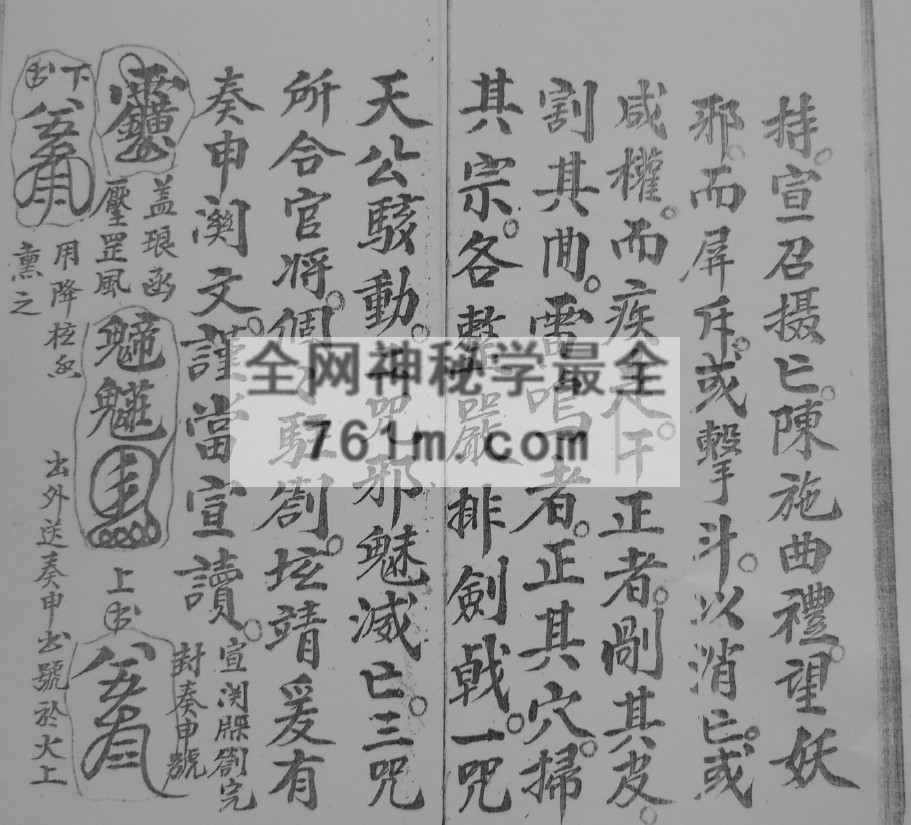 持。宣召摄亡。陳施曲禮。望妖
邪。而屏斥。或擊斗。以消亡。或
咸權。而疾 干正者。剮其皮。
割其曲。雷鳴者。正其穴。掃
其宗。各整嚴排劍戟。一咒
天公駭動。 咒邪魅滅亡。三咒
所合官将。 駐劄。坛靖爰有
奏申 文。謹當宣讀。
宣 牒劄完
封奏申號
盖琅函
壓罡风
上书
下书
用降 
熏之
出外送奏申出號於火上
全网神秘学最全
761m.com